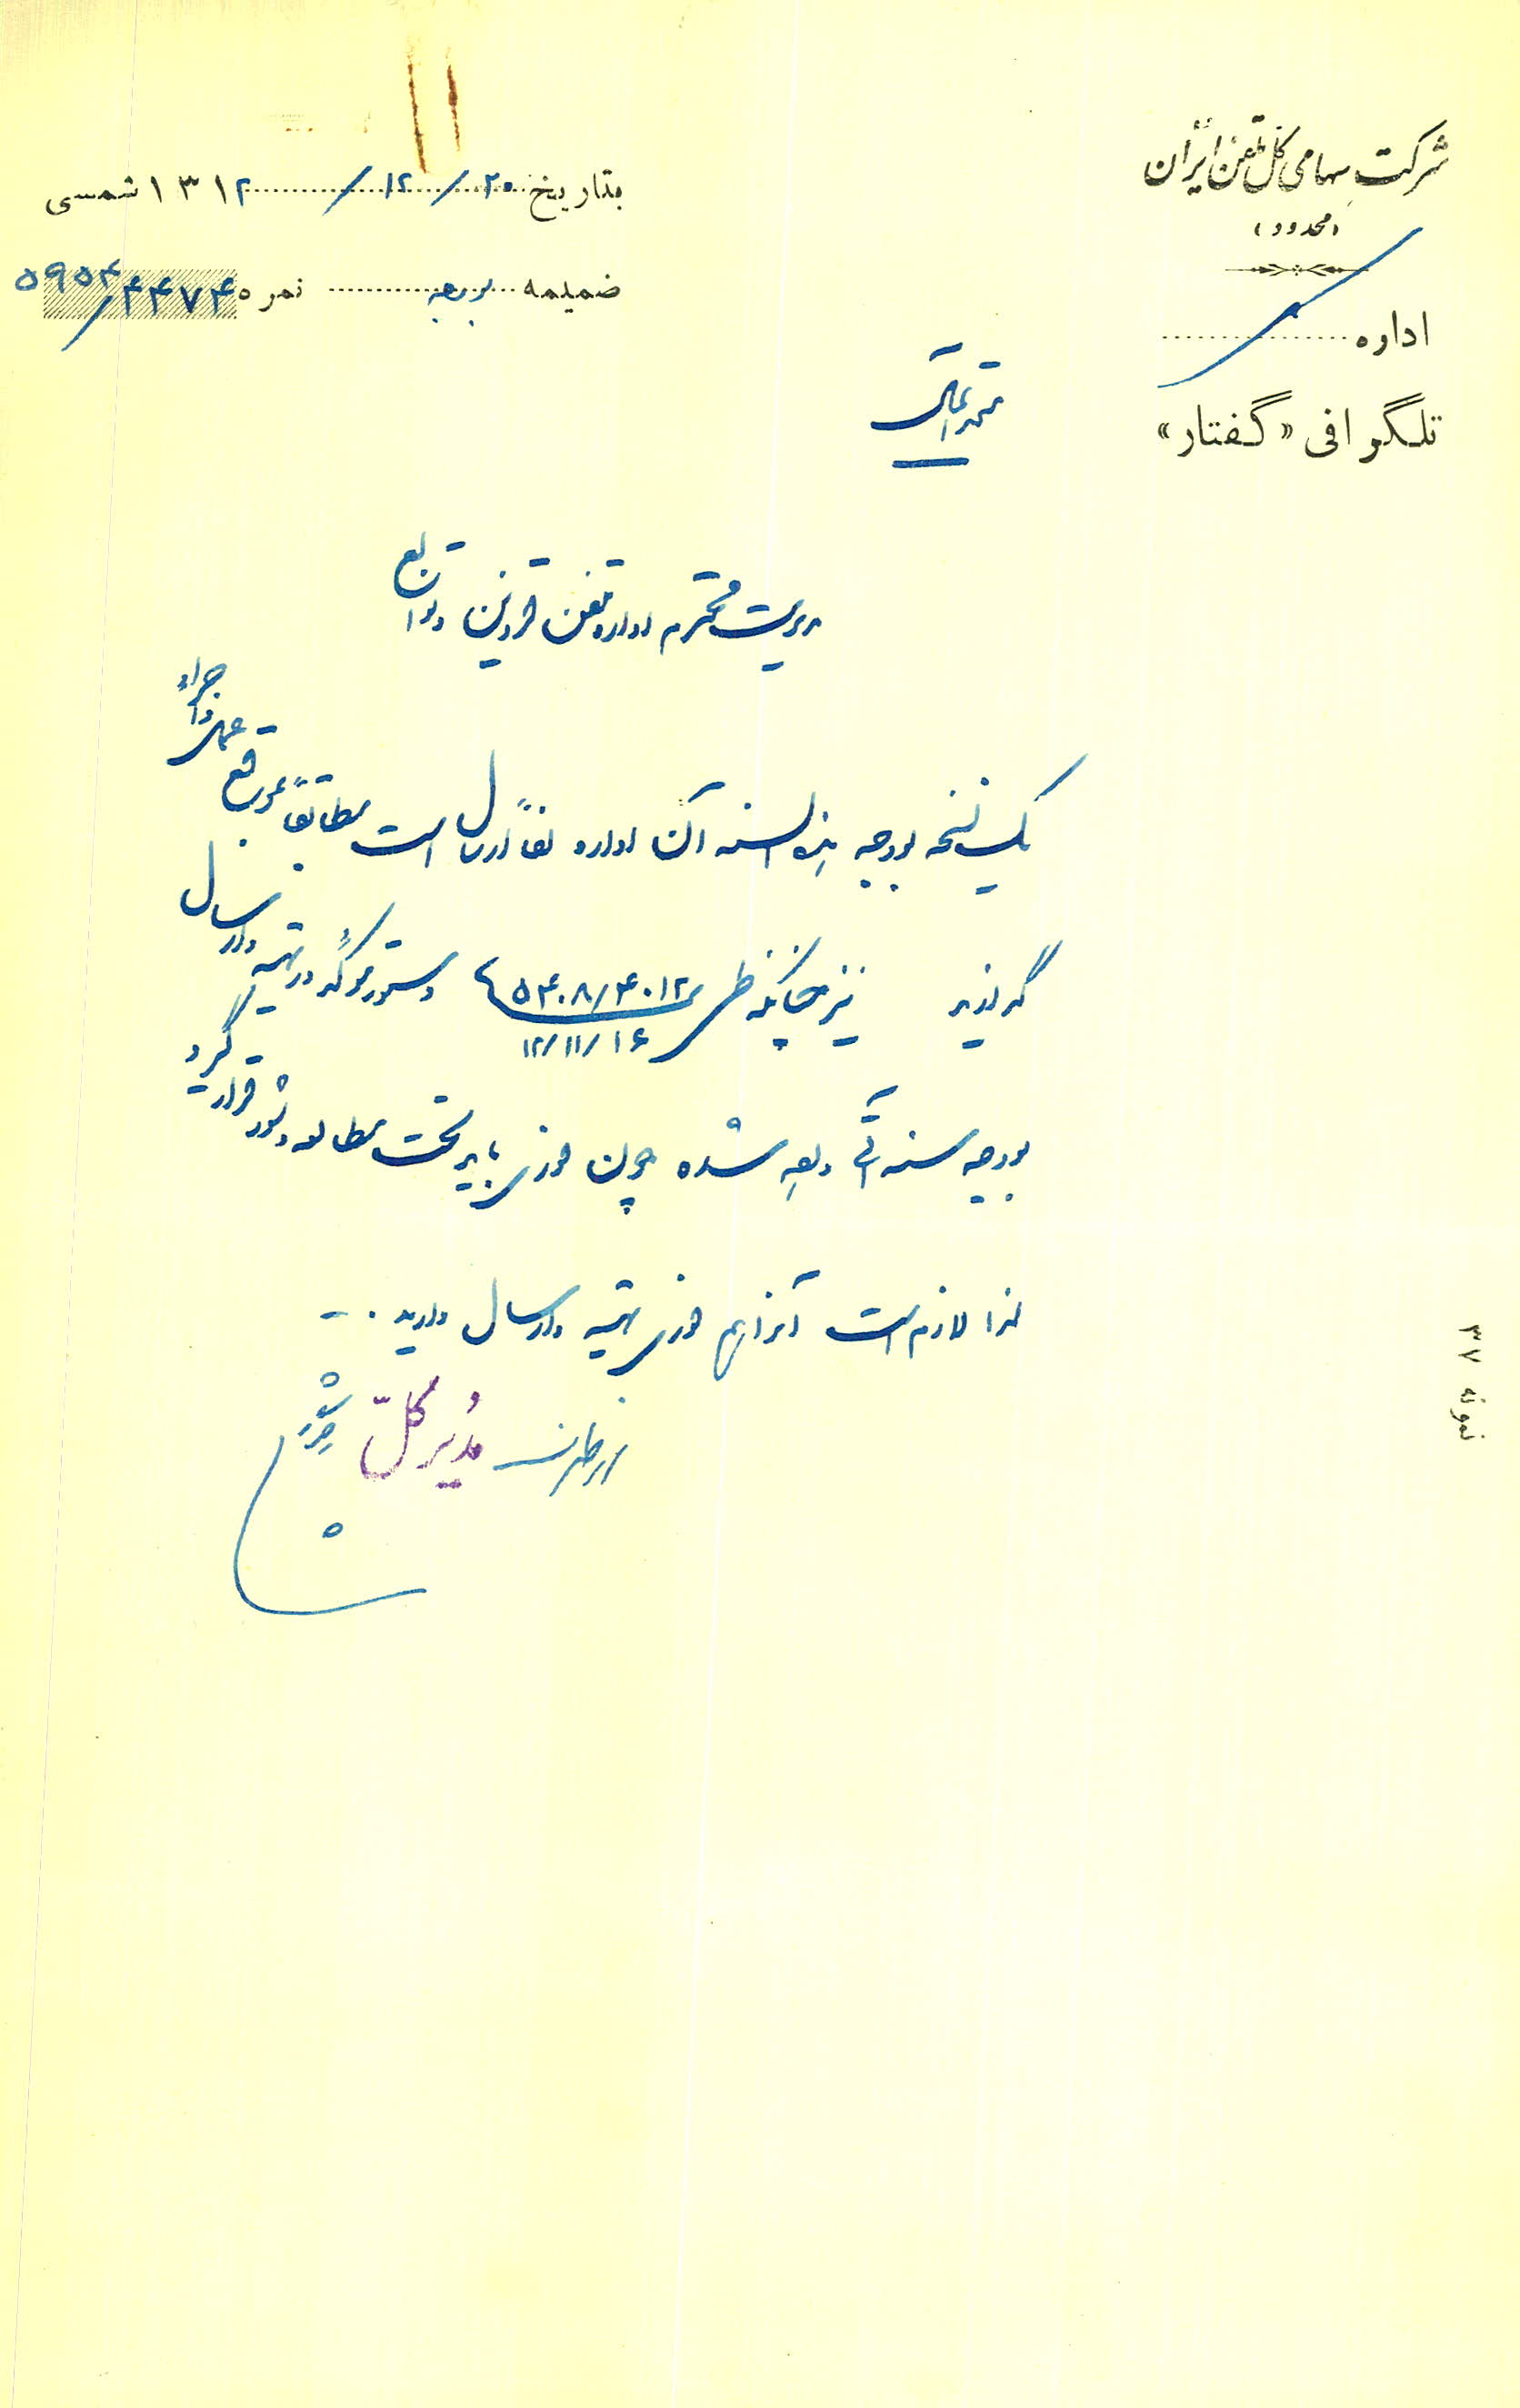 شرکت سهامی کل تلفن ایران
(محدود)
اداره
تلگرافی «گفتار»
بتاریخ ۲۰/ ۱۲/ ۱۳۱۲ شمسی
ضمیمه بودجه نمره ۴۴۷۴/۵۹۵۴
متحدالمال
مدیریت محترم اداره تلفن قزوین و توابع
یک نسخه بودجه هذه السنه آن اداره لفاً ارسال است مطابقاً بموقع عمل و اجراء
گذارید نیز چنانکه طی ۵۴۰۸/۴۰۱۲ ۱۲/۱۱/۱۶ دستور مؤکد در تهیه و ارسال
بودجه سنه آتی داده شده چون فوری باید تحت مطالعه و شور قرار گیرد
لذا لازم است آنرا هم فوری تهیه و ارسال دارید .-
از طرف مدیر کل
نمونه ۳۷